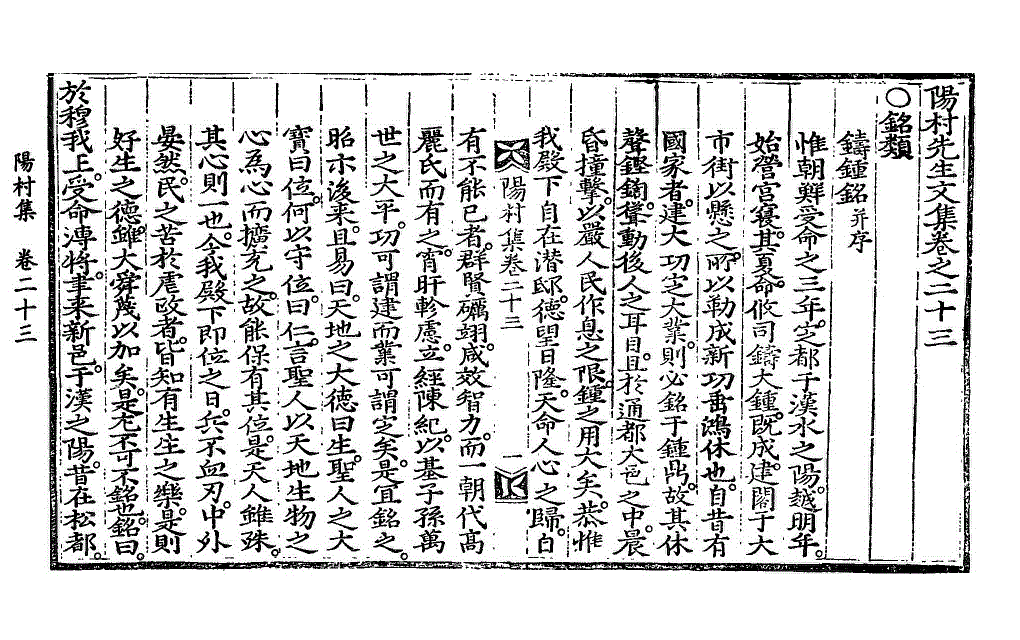 陽村先生文集卷之二十三
○銘類
鑄鍾銘 并序
惟朝鮮受命之三年。定都于漢水之陽。越明年。
始營宮寢。其夏。命攸司鑄大鍾。旣成。建閣于大
市街以懸之。所以勒成新功垂鴻休也。自昔有
國家者。建大功定大業。則必銘于鍾鼎。故其休
聲鏗鍧。聳動後人之耳目。且於通都大邑之中。晨
昏撞擊。以嚴人民作息之限。鍾之用大矣。恭惟
我殿下自在潛邸。德望日隆。天命人心之歸。自
陽村集卷二十三 一
有不能已者。群賢礪翊。咸效智力。而一朝代高
麗氏而有之。宵旰軫慮。立經陳紀。以基子孫萬
世之大平。功可謂建而業可謂定矣。是宜銘之。
昭示後來。且易曰。天地之大德曰生。聖人之大
寶曰位。何以守位。曰仁。言聖人以天地生物之
心爲心而擴充之。故能保有其位。是天人雖殊。
其心則一也。今我殿下卽位之日。兵不血刃。中外
晏然。民之苦於虐政者。皆知有生生之樂。是則
好生之德。雖大舜蔑以加矣。是尤不可不銘也。銘曰。
於穆我上。受命溥將。聿來新邑。于漢之陽。昔在松都。
陽村集 卷二十三